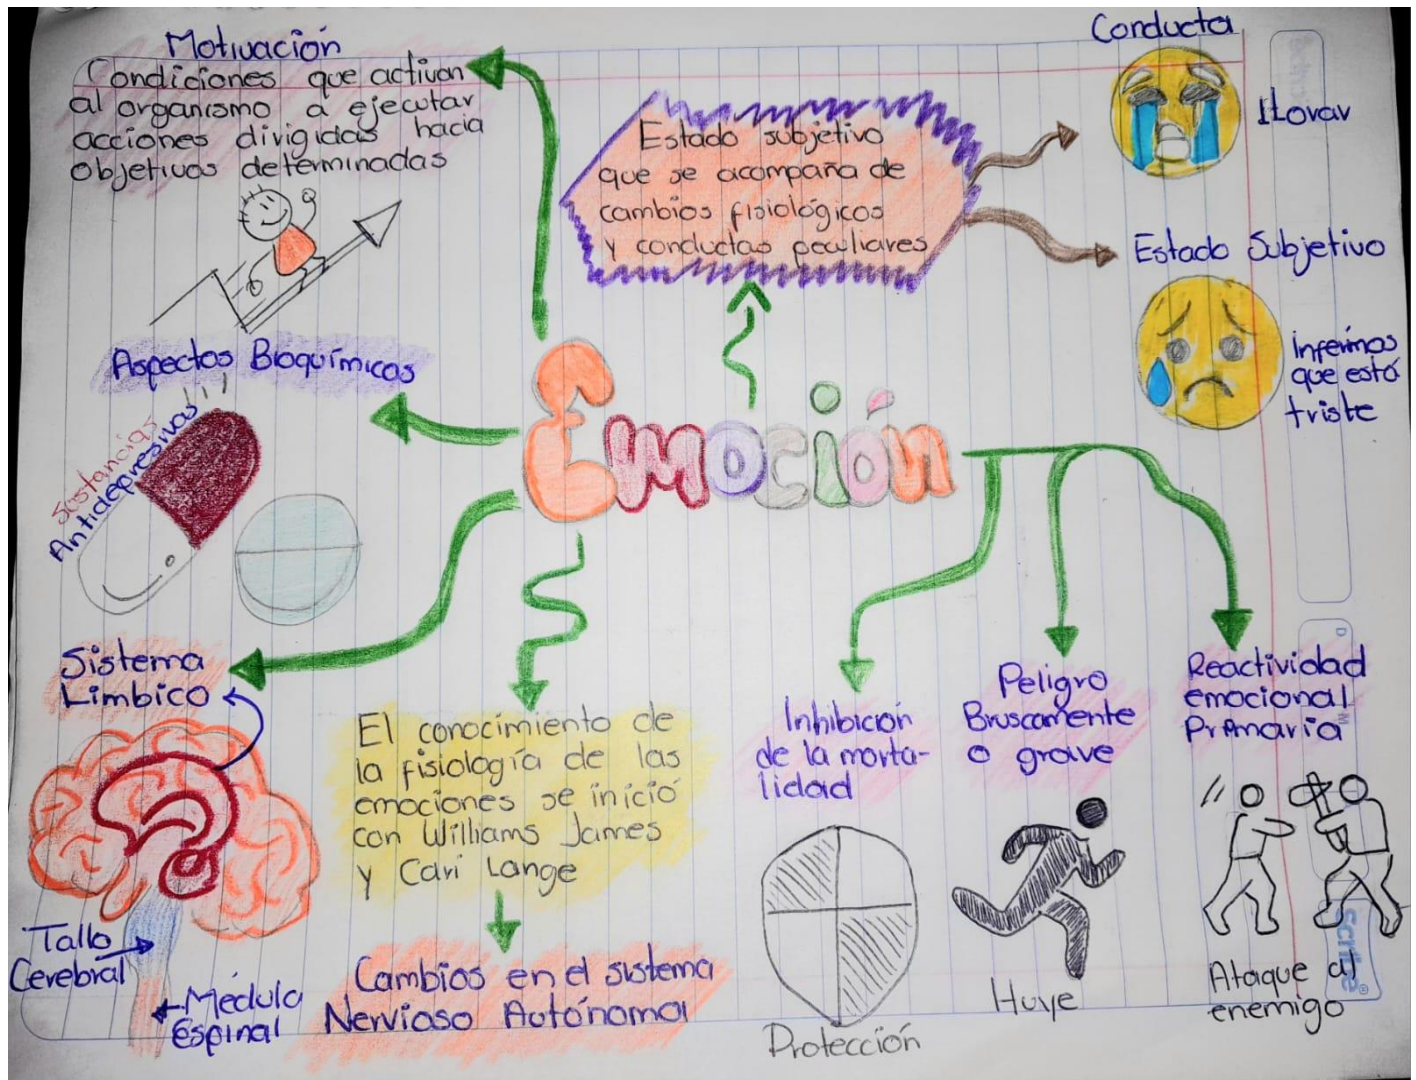 Motivación
Condiciones que activan
al organismo a ejecutar
acciones dirigidas hacia
objetivos determinadas
Estado subjetivo
que se acompaña de
cambios fisiológicos
y conductas peculiares
Conducta
llorar
Estado Subjetivo
Inferimos
que está
triste
Aspectos Bioquímicos
Sustancias
Antidepresivos
Emoción
Sistema
Limbico
Tallo
Cerebral
Medula
Espinal
El conocimiento de
la fisiología de las
emociones se inició
con Williams James
y Carl Lange
Cambios en el sistema
Nervioso Autónomo
Inhibición
de la morta-
lidad
Protección
Peligro
Bruscamente
o grave
Huye
Reactividad
emocional
Primaria
Ataque al
enemigo
scribe